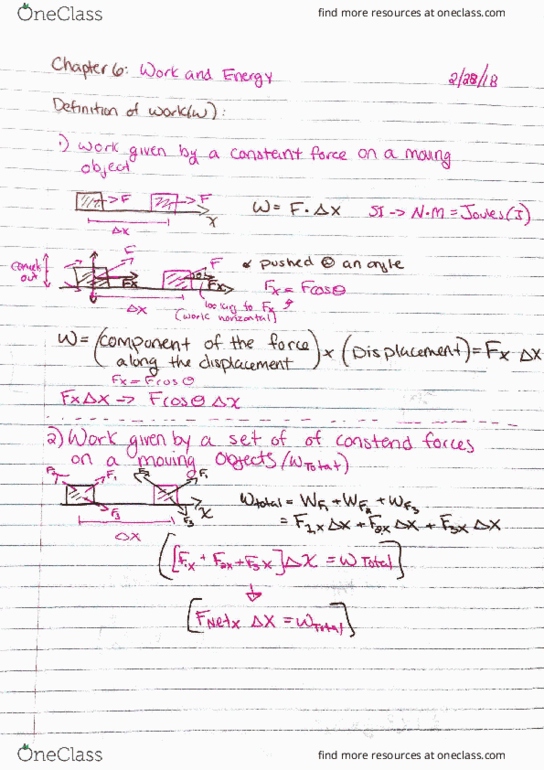 OneClass find more resources at oneclass.com
Chapter 6: Work and Energy 2/28/18
Definition of work(w):
1) work given by a constant force on a moving
object
F F
Δx x
W = F · Δx SI -> N·m = Joules (J)
F F
Fx θ Fx
cancels
out
pushed @ an angle
Fx = Fcosθ
Δx
looking to Fx
(work horizontal)
W = (component of the force along the displacement) x (Displacement) = Fx Δx
Fx = Fcosθ
FxΔx -> Fcosθ Δx
2) Work given by a set of of constend forces
on a moving Objects (WTotal)
F2 F1 F2 F1
F3 F3 x
Δx
Wtotal = WF1 + WF2 + WF3
= F1x Δx + F2x Δx + F3x Δx
([F1x + F2x + F3x] Δx = WTotal)
[FNetx Δx = WTotal]
OneClass find more resources at oneclass.com